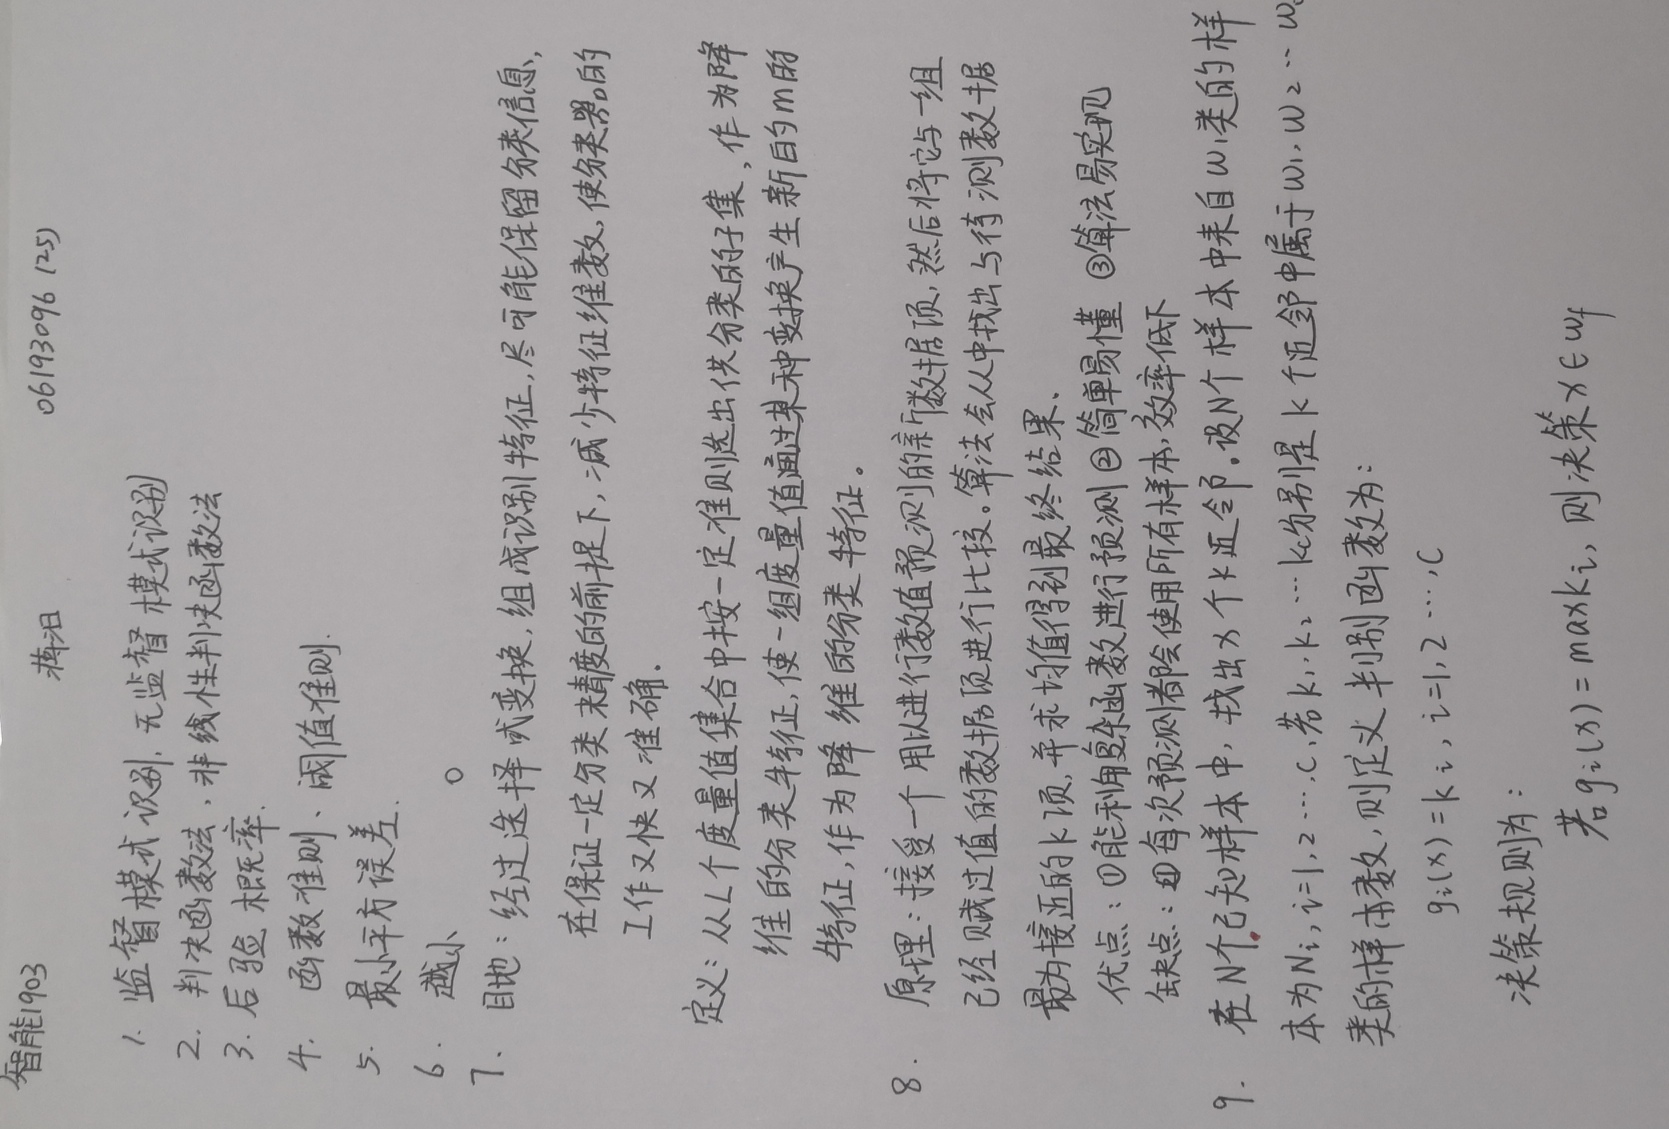 智能1903 蒋汨 06193096 (25)
1. 监督模式识别, 无监督模式识别
2. 判决函数法, 非线性判决函数法
3. 后验概率.
4. 函数准则、阈值准则.
5. 最小平方误差.
6. 越小 0
7. 目地: 经过选择或变换, 组成识别特征, 尽可能保留分类信息,
在保证一定分类精度的前提下, 减少特征维数, 使分类器的
工作又快又准确.
定义: 从L个度量值集合中按一定准则选出供分类的子集, 作为降
维的分类特征, 使一组度量值通过某种变换产生新的m的
特征, 作为降维的分类特征。
8. 原理: 接受一个用以进行数值预测的新数据项, 然后将它与一组
已经赋过值的数据项进行比较。算法会从中找出与待测数据
最为接近的k项, 并求均值得到最终结果.
优点: ①能利用复杂函数进行预测 ②简单易懂 ③算法易实现
缺点: ①每次预测都会使用所有样本, 效率低下
9. 在N个已知样本中, 找出x个k近邻。设N个样本中来自w₁类的样
本为Nᵢ, i=1, 2 … , C, 若k₁, k₂ … kc分别是k个近邻中属于w₁, w₂ … wc
类的样本数, 则定义判别函数为:
gᵢ(x) = kᵢ, i=1, 2 …, C
决策规则为:
若gᵢ(x) = max kᵢ, 则决策 x∈wⱼ